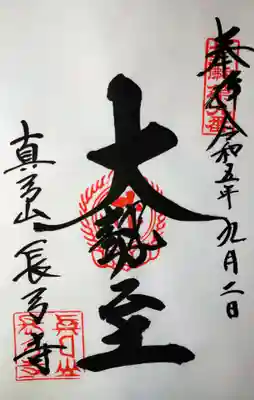 奉拝 令和五年九月二日
大勢至
真弓山 長弓寺